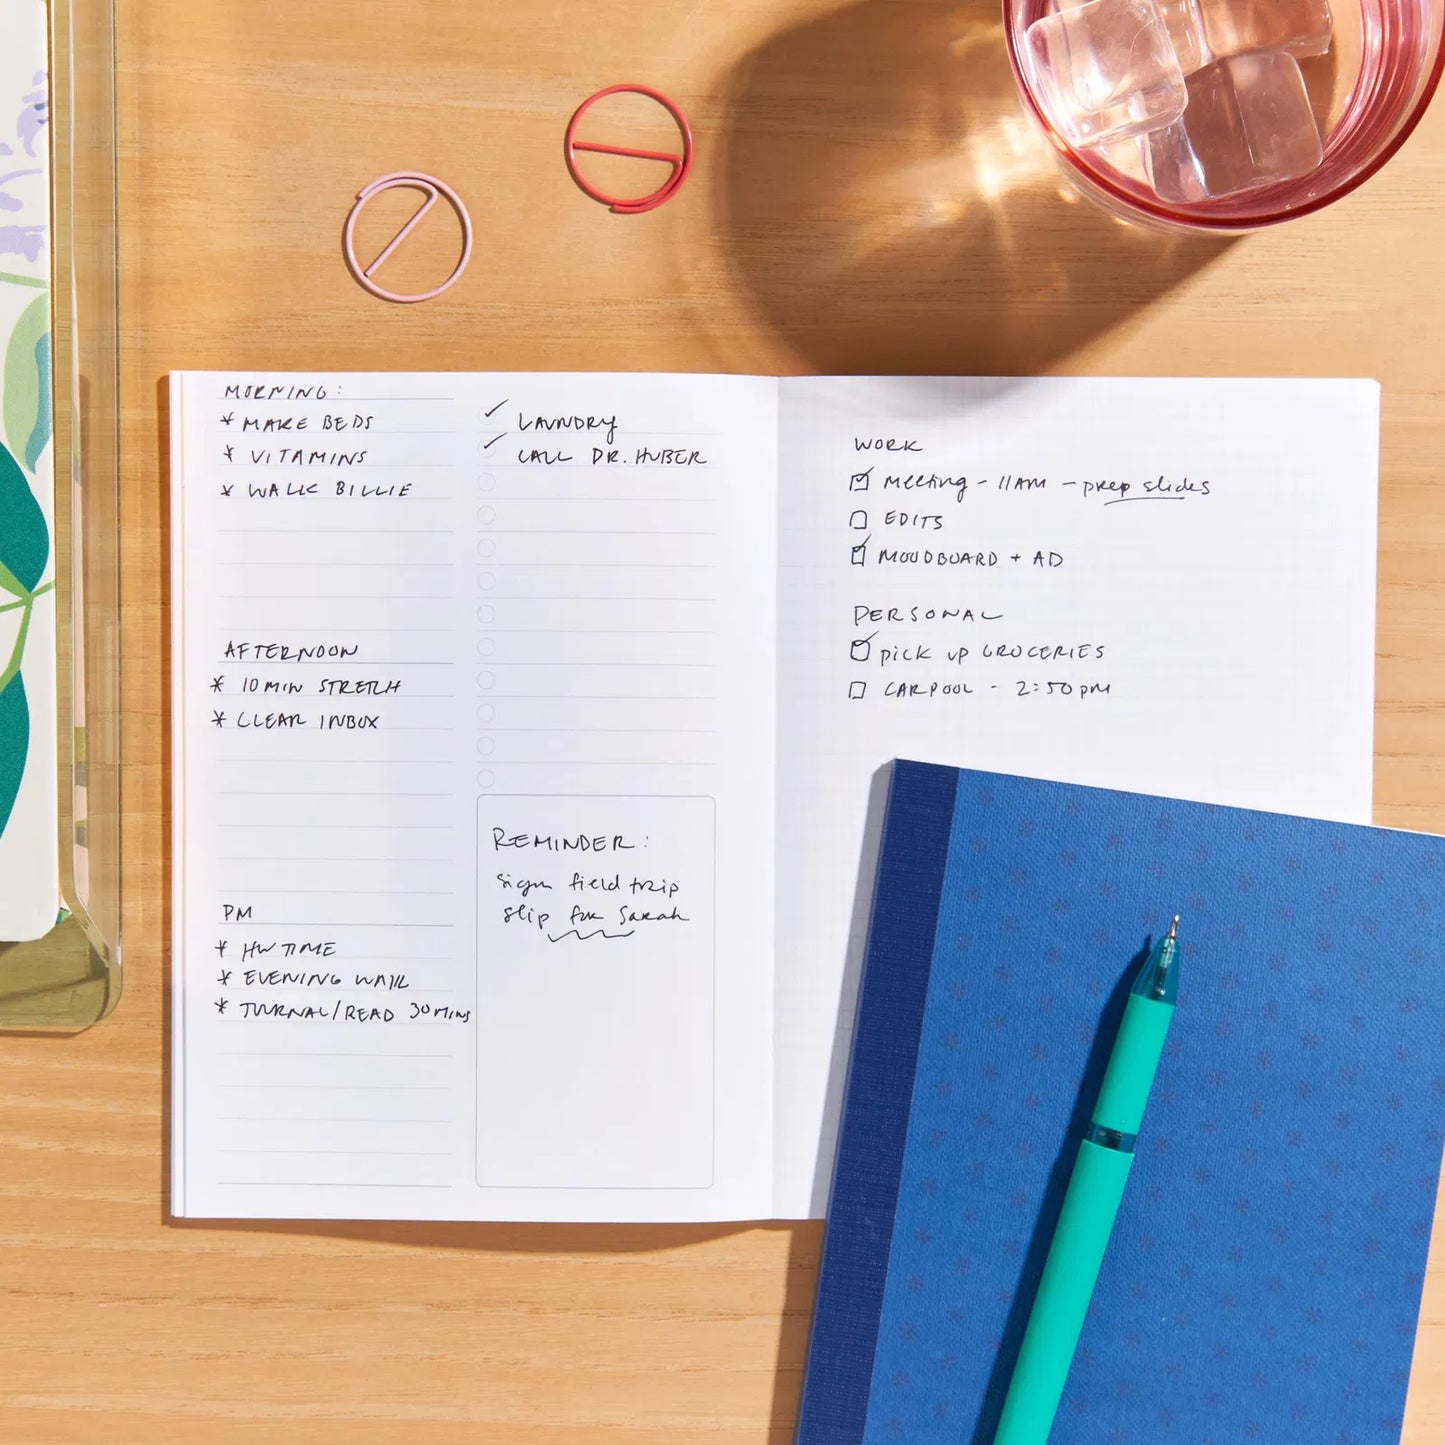 MORNING:
* MAKE BEDS
* VITAMINS
* WALK BILLIE
AFTERNOON
* 10 MIN STRETCH
* CLEAR INBOX
PM
* HW TIME
* EVENING WALK
* JOURNAL/READ 30 MINS
✓ LAUNDRY
✓ CALL DR. HUBER
REMINDER:
Sign field trip
slip for Sarah
WORK
☑ Meeting - 11AM - prep slides
☐ EDITS
☑ MOODBOARD + AD
PERSONAL
☑ PICK UP GROCERIES
☐ CARPOOL - 2:50pm